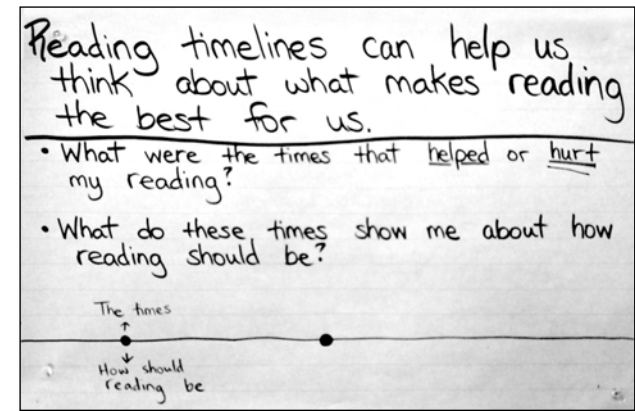 Reading timelines can help us
think about what makes reading
the best for us.
• What were the times that helped or hurt
my reading?
• What do these times show me about how
reading should be?
The times
How should
reading be